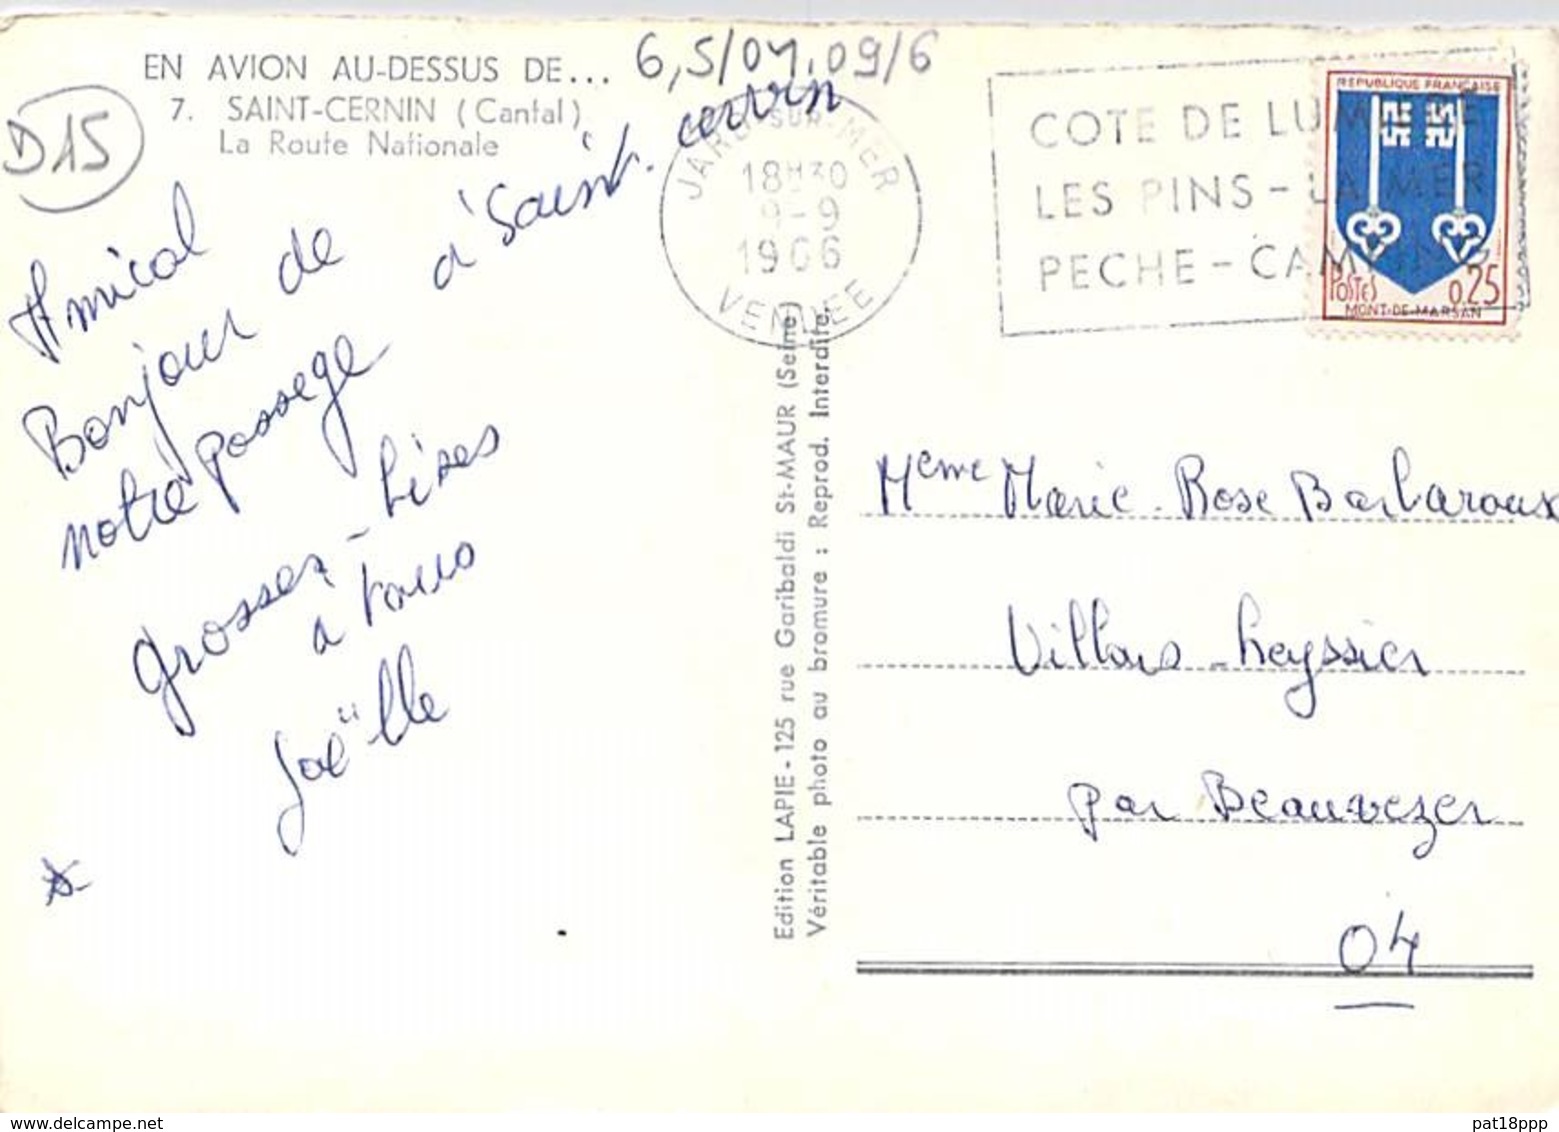 EN AVION AU-DESSUS DE...
7. SAINT-CERNIN (Cantal)
La Route Nationale
D15
6,5/04.09/6
Amical
Bonjour de
notre passage
à Saint-cernin
grosses-bises
a tous
Joëlle
JARD-SUR-MER
18H30
9-9
1966
VENDEE
COTE DE LUMIERE
LES PINS - LA MER
PECHE - CAMPING
REPUBLIQUE FRANCAISE
POSTES 0.25
MONT-DE-MARSAN
Edition LAPIE - 125 rue Garibaldi St-MAUR (Seine)
Véritable photo au bromure : Reprod. Interdite.
Meme Marie-Rose Barbaroux
Villars-heyssier
par Beauvezer
04
pat18ppp